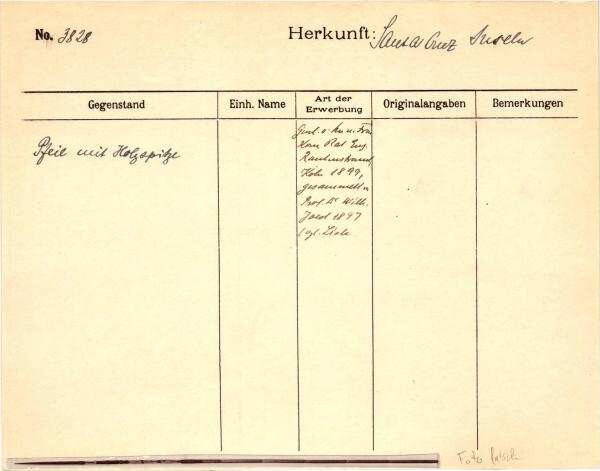 No. 3828
Herkunft: Santa Cruz Inseln
Gegenstand
Einh. Name
Art der Erwerbung
Originalangaben
Bemerkungen
Pfeil mit Holzspitze
Gesch. v. Hn u. Frau
Kom Rat Eug.
Rautenstrauch,
Köln 1899,
gesammelt v.
Prof. Dr Wilh.
Joest 1897
Foto falsch